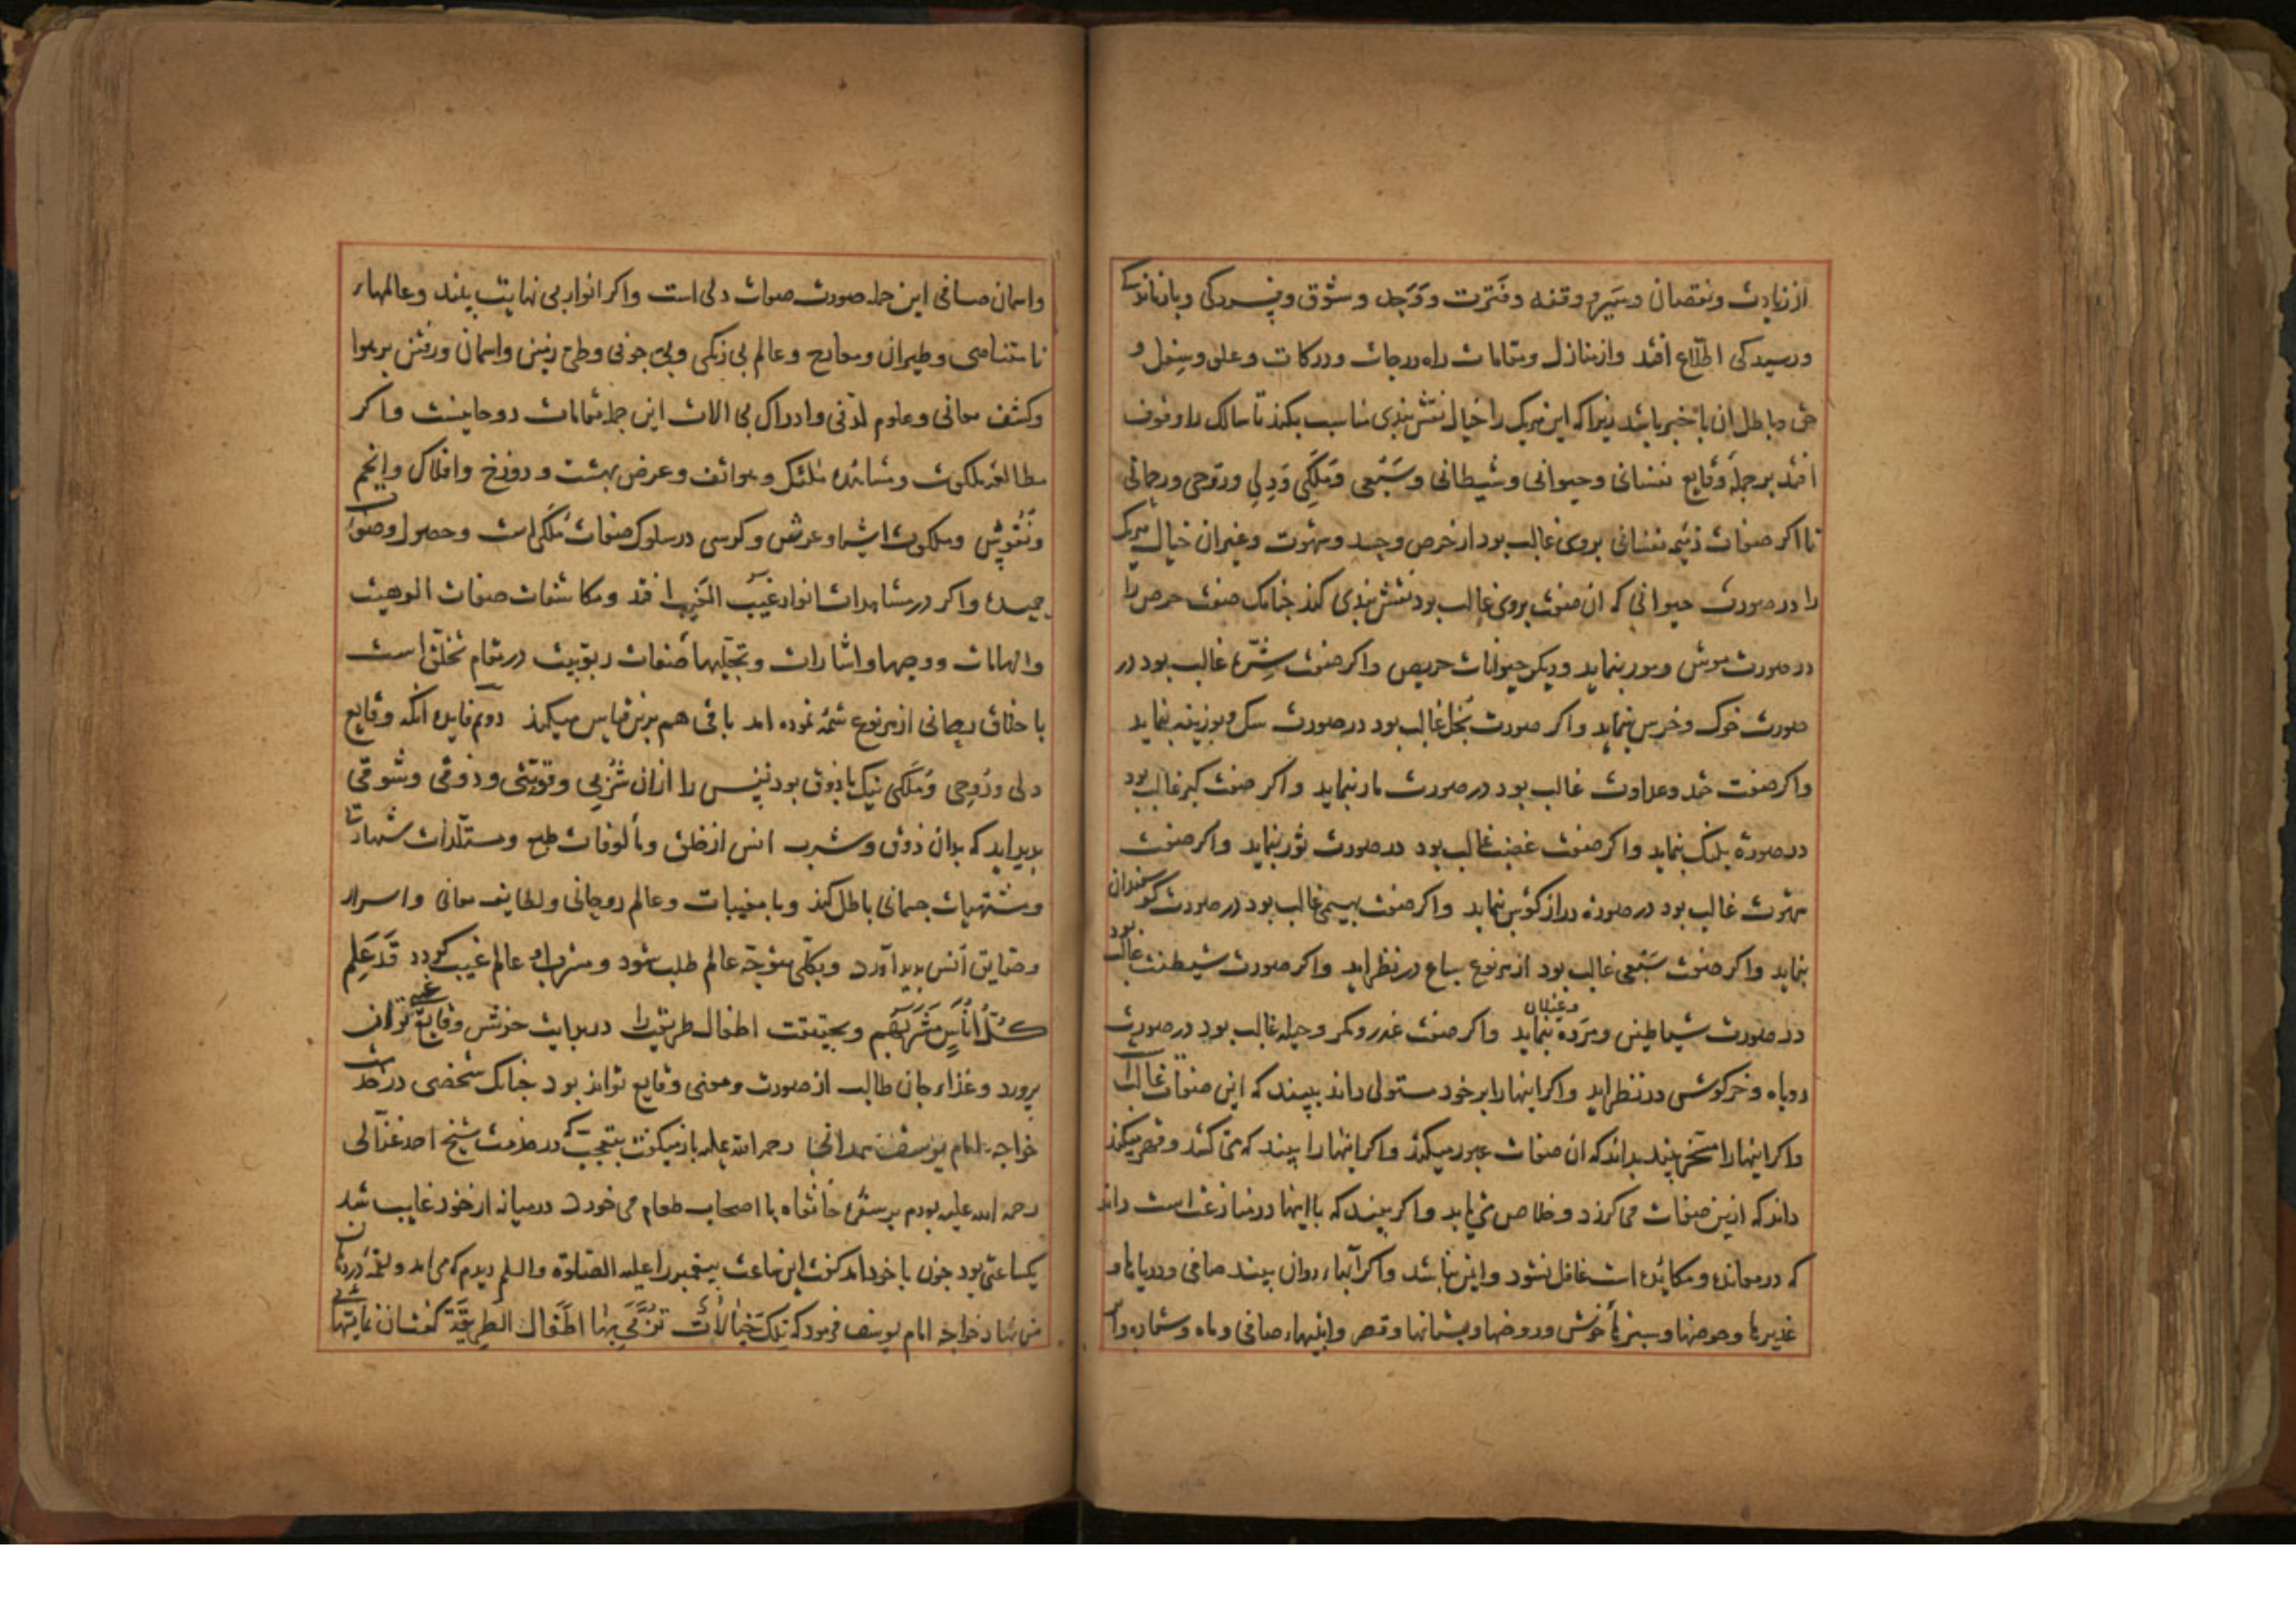 از زیادت و نقصان و سیر و وقفه و فترت و وجل و شوق و فسردگی و بازماندگی
و رسیدگی اطلاع افتد و از منازل و مقامات راه و درجات و درکات و علو و سفل و
حق و باطل ان با خبر باشد زیرا که این هریک را خیال نقش بندی مناسب بکند تا سالک را وقوف
افتد بر جمله وقایع نفسانی و حیوانی و شیطانی و سبعی و ملکی و دلی و روحی و رحمانی
تا اکر صفات ذمیمه نفسانی بروی غالب بود از حرص و حسد و شهوت و غیر ان خیال هریک
را در صورت حیوانی که ان صفت بروی غالب بود نقش بندی کند جنانک صفت حرص را
در صورت موش و مور بنماید و دیکر حیوانات حریص واکر صفت شره غالب بود در
صورت خوک و خرس بنماید واکر صورت بخل غالب بود در صورت سک و بوزینه بنماید
واکر صفت حقد و عداوت غالب بود در صورت مار بنماید واکر صفت کبر غالب بود
در صورة پلنک بنماید واکر صفت غضب غالب بود در صورت ثور بنماید واکر صفت
شهوت غالب بود در صورة دراز کوش بنماید واکر صفت بهیمی غالب بود در صورت کوسفندان
بنماید واکر صفت سبعی غالب بود از هر نوع سباع در نظر اید واکر صورت شیطنت غالب بود
در صورت شیاطین و مرده و غیلان بنماید واکر صفت غدر و مکر و حیله غالب بود در صورت
روباه و خرکوش در نظر اید واکر اینها را بر خود مستولی داند ببیند که این صفات غالب است
واکر اینها را مسخر بیند بداند که ان صفات عبور میکند واکر اینها را ببیند که می کشد و قهر میکند
داند که ازین صفات می کرزد و خلاص می یابد واکر بیند که با اینها در منازعت است داند
که در معانده و مکایده است غافل نشود و ایمن نباشد واکر آبهاء روان بیند صافی و دریاها و
غدیرها و حوضها و سبزهاء خوش و روضها و بستانها و قصر و ابنیهاء صافی و ماه و ستاره و
واسمان صافی این جمله صورت صفات دلی است واکر انوار بی نهایت بیند و عالمهاء
نا متناهی و طیران و معارج و عالم بی رنکی و بی جونی و طی زمین و اسمان و رفتن بر هوا
و کشف معانی و علوم لدنی و ادراک بی الات این جمله مقامات روحانیست واکر
مطالعه ملکوت و مشاهده ملائک و هواتف و عرض بهشت و دوزخ و افلاک و انجم
و نقوش و ملکوت اشیا و عرش و کرسی در سلوک صفات ملکی است و حصول صفات
حمیده واکر در مشاهدات انوار غیب الغیب افتد و مکاشفات صفات الوهیت
و الهامات و وحیها و اشارات و تجلیها صفات ربوبیت در مقام تخلق است
با اخلاق رحمانی از هر نوع شمه نموده امد باقی هم برین قیاس میکند دوم فایده انکه وقایع
دلی و روحی و ملکی نیک با ذوق بود نفس را ازان شربی و قوتی و ذوقی و شوقی
بدید اید که بدان ذوق و شرب انس از خلق و مألوفات طبع و مستلذات شهوات
و مشتهیات جسمانی باطل کند و با مغیبات و عالم روحانی و لطایف معانی و اسرار
و حقایق انس بدید آورد و بکلی متوجه عالم طلب شود و مشرب او عالم غیب کردد قد علم
کل اناس مشربهم و بحقیقت اطفال طریقت را در بدایت جز بشیر وقایع غیبی نتوان
پرورد و غذاء جان طالب از صورت و معنی وقایع تواند بود جنانک شخصی در خدمت
خواجه امام یوسف همدانی رحمه الله علیه باز میکفت بتعجب که در خدمت شیخ احمد غزالی
رحمه الله علیه بودم بر سفره خانقاه با اصحاب طعام می خورد در میانه از خود غایب شد
یکساعتی بود جون با خود امد کفت این ساعت پیغمبر را علیه الصلوة والسلم دیدم که می امد و لقمه در دهان
من نهاد خواجه امام یوسف فرمود که تلک خیالات تربی بها اطفال الطریقة کفت ان